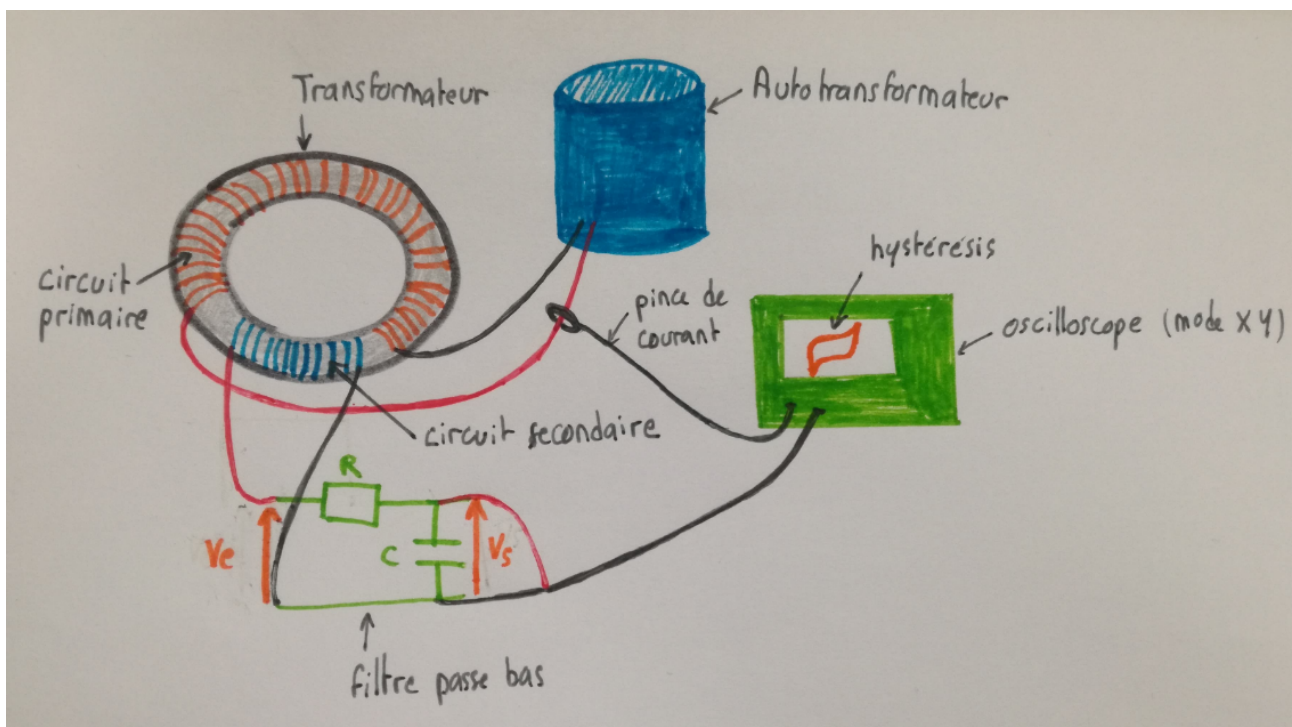 Transformateur
Autotransformateur
circuit
primaire
pince de
courant
hystérésis
oscilloscope (mode XY)
circuit secondaire
R
Ve
C
Vs
filtre passe bas